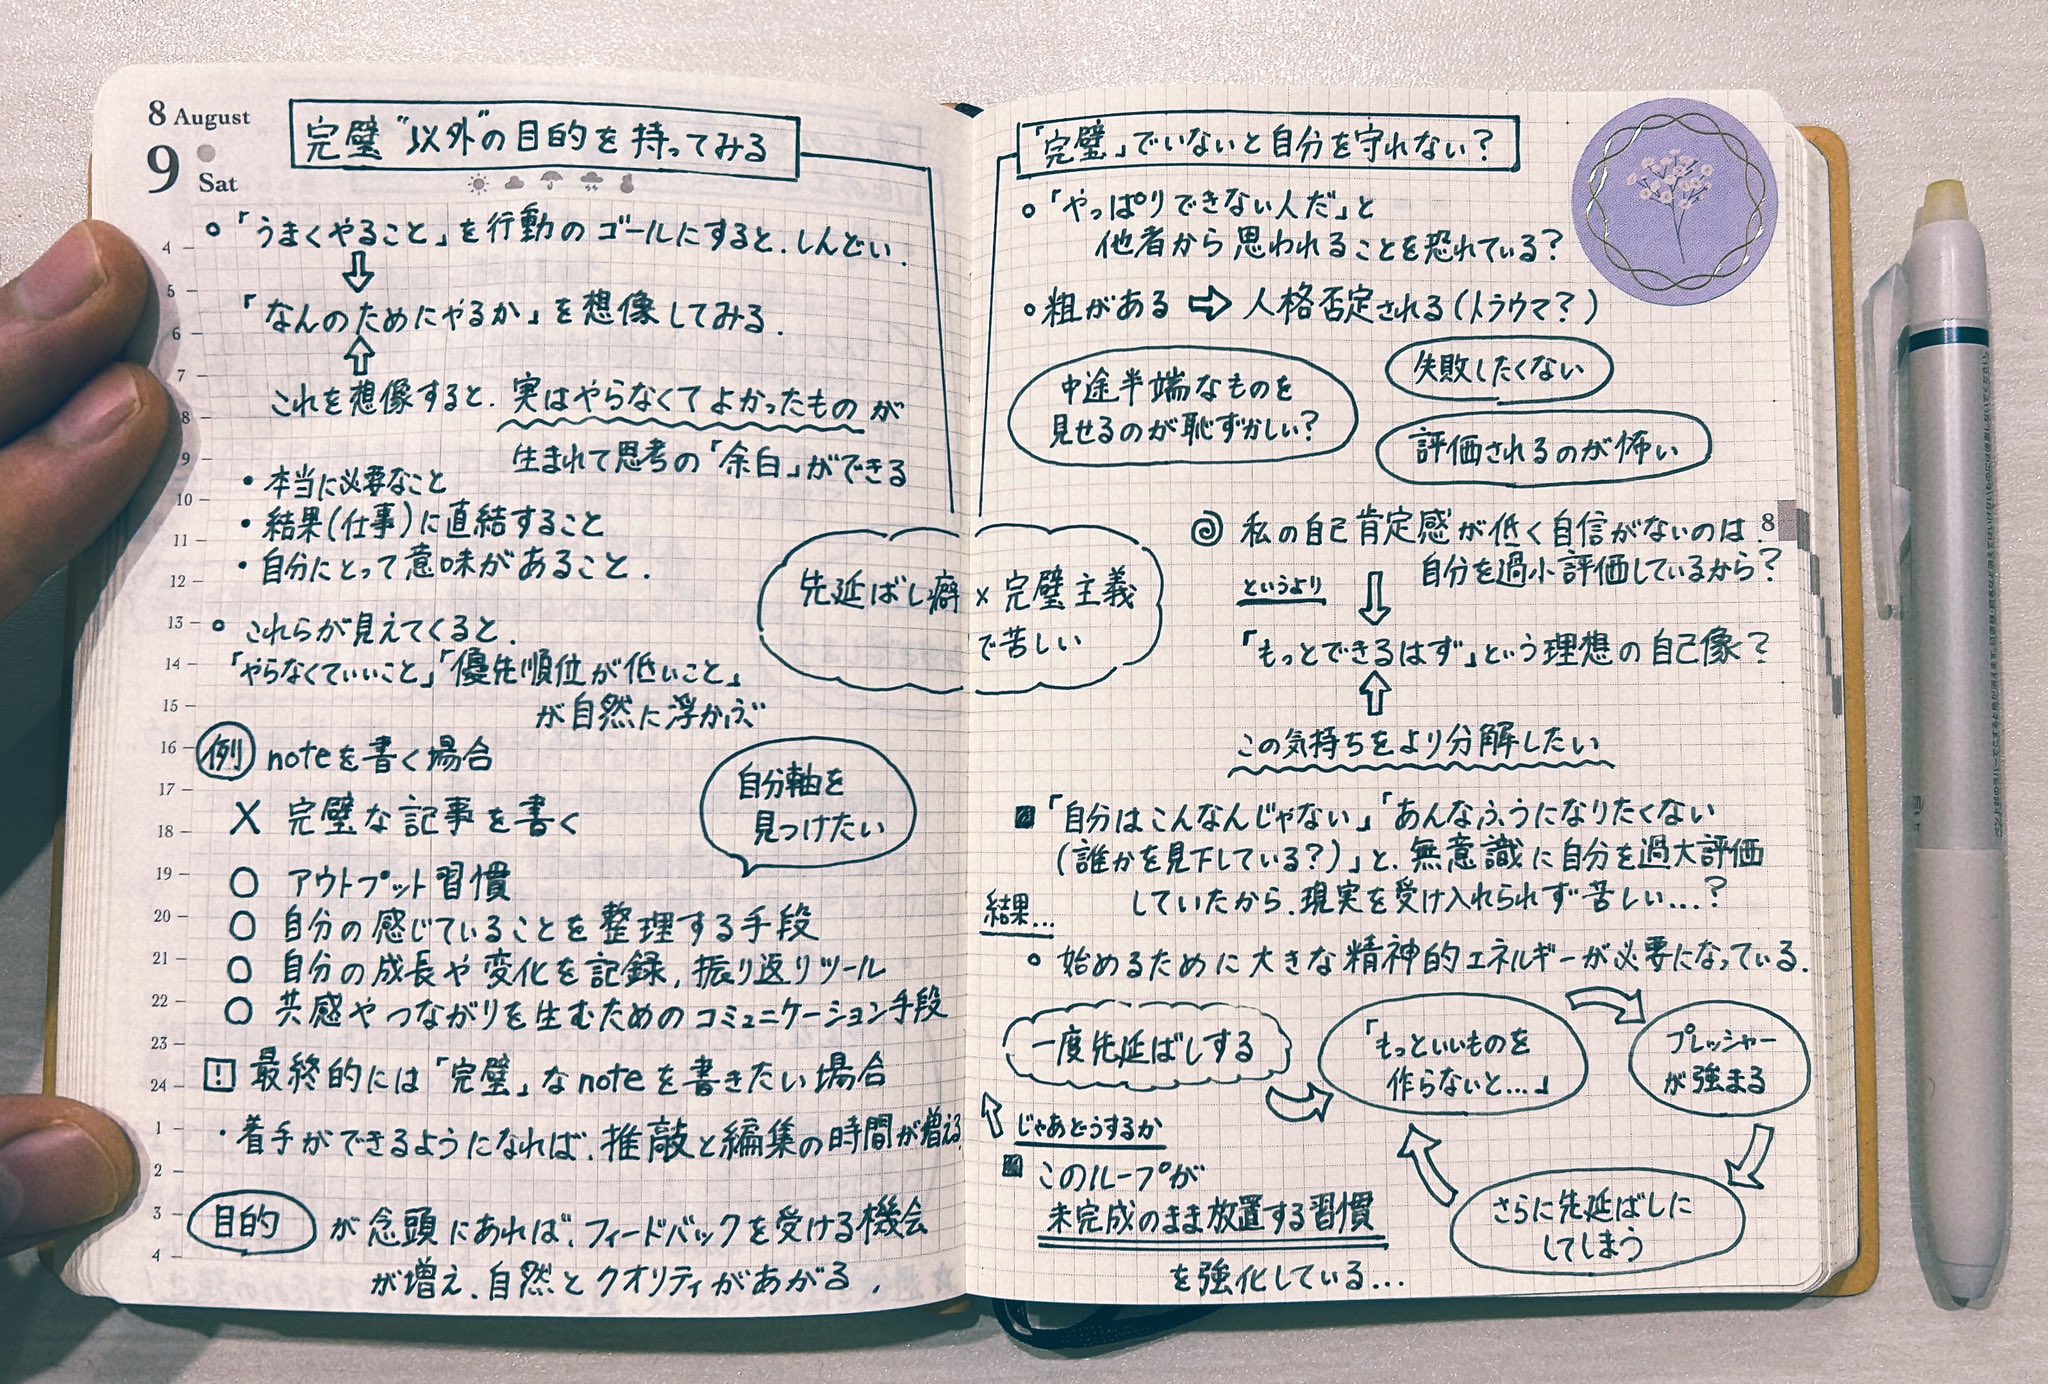 8 August
9
Sat
完璧"以外"の目的を持ってみる
○「うまくやること」を行動のゴールにすると、しんどい.
⇩
「なんのためにやるか」を想像してみる.
⇧
これを想像すると、実はやらなくてよかったものが
生まれて思考の「余白」ができる
・本当に必要なこと
・結果(仕事)に直結すること
・自分にとって意味があること.
○ これらが見えてくると、
「やらなくていいこと」「優先順位が低いこと」
が自然に浮かぶ
例 noteを書く場合
X 完璧な記事を書く
○ アウトプット習慣
○ 自分の感じていることを整理する手段
○ 自分の成長や変化を記録,振り返りツール
○ 共感やつながりを生むためのコミュニケーション手段
自分軸を
見つけたい
! 最終的には「完璧」なnoteを書きたい場合
・着手ができるようになれば、推敲と編集の時間が増える,
目的 が念頭にあれば、フィードバックを受ける機会
が増え、自然とクオリティがあがる.
4
5
6
7
8
9
10
11
12
13
14
15
16
17
18
19
20
21
22
23
24
1
2
3
4
先延ばし癖×完璧主義
で苦しい
「完璧」でいないと自分を守れない?
○「やっぱりできない人だ」と
他者から思われることを恐れている?
○ 粗がある ⇨ 人格否定される(トラウマ?)
中途半端なものを
見せるのが恥ずかしい?
失敗したくない
評価されるのが怖い
◎ 私の自己肯定感が低く自信がないのは、
自分を過小評価しているから?
というより ⇩
「もっとできるはず」という理想の自己像?
⇧
この気持ちをより分解したい
8
■「自分はこんなんじゃない」「あんなふうになりたくない
(誰かを見下している?)」と、無意識に自分を過大評価
していたから、現実を受け入れられず苦しい...?
結果...
○ 始めるために大きな精神的エネルギーが必要になっている.
一度先延ばしする
「もっといいものを
作らないと...」
プレッシャー
が強まる
さらに先延ばしに
してしまう
じゃあどうするか
■ このループが
未完成のまま放置する習慣
を強化している...